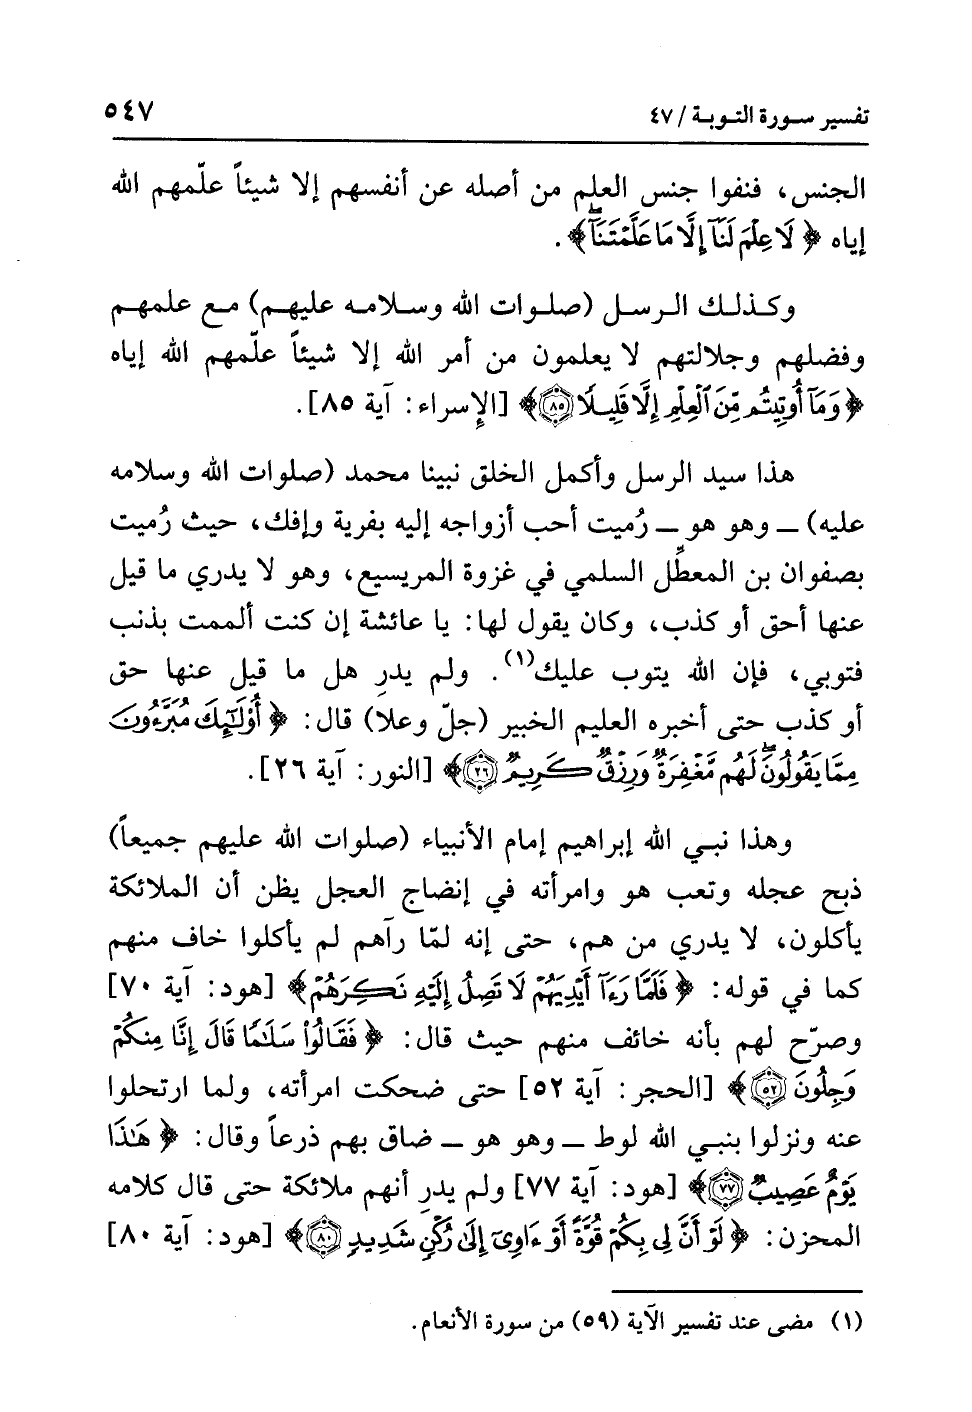 تفسير سورة التوبة / ٤٧ ٥٤٧
الجنس، فنفوا جنس العلم من أصله عن أنفسهم إلا شيئاً علّمهم الله
إياه ﴿ لَا عِلْمَ لَنَآ إِلَّا مَا عَلَّمْتَنَآۖ ﴾.
وكذلك الرسل (صلوات الله وسلامه عليهم) مع علمهم
وفضلهم وجلالتهم لا يعلمون من أمر الله إلا شيئاً علّمهم الله إياه
﴿ وَمَآ أُوتِيتُم مِّنَ ٱلْعِلْمِ إِلَّا قَلِيلًا ٨٥ ﴾ [الإسراء: آية ٨٥].
هذا سيد الرسل وأكمل الخلق نبينا محمد (صلوات الله وسلامه
عليه) ــ وهو هو ــ رُميت أحب أزواجه إليه بفرية وإفك، حيث رُميت
بصفوان بن المعطِّل السلمي في غزوة المريسيع، وهو لا يدري ما قيل
عنها أحق أو كذب، وكان يقول لها: يا عائشة إن كنت ألممت بذنب
فتوبي، فإن الله يتوب عليك(١). ولم يدرِ هل ما قيل عنها حق
أو كذب حتى أخبره العليم الخبير (جلّ وعلا) قال: ﴿ أُوْلَٰٓئِكَ مُبَرَّءُونَ
مِمَّا يَقُولُونَۖ لَهُم مَّغْفِرَةٌ وَرِزْقٌ كَرِيمٌ ٢٦ ﴾ [النور: آية ٢٦].
وهذا نبي الله إبراهيم إمام الأنبياء (صلوات الله عليهم جميعاً)
ذبح عجله وتعب هو وامرأته في إنضاج العجل يظن أن الملائكة
يأكلون، لا يدري من هم، حتى إنه لمّا رآهم لم يأكلوا خاف منهم
كما في قوله: ﴿ فَلَمَّا رَءَآ أَيْدِيَهُمْ لَا تَصِلُ إِلَيْهِ نَكِرَهُمْ ﴾ [هود: آية ٧٠]
وصرّح لهم بأنه خائف منهم حيث قال: ﴿ فَقَالُواْ سَلَٰمًا قَالَ إِنَّا مِنكُمْ
وَجِلُونَ ٥٢ ﴾ [الحجر: آية ٥٢] حتى ضحكت امرأته، ولما ارتحلوا
عنه ونزلوا بنبي الله لوط ــ وهو هو ــ ضاق بهم ذرعاً وقال: ﴿ هَٰذَا
يَوْمٌ عَصِيبٌ ٧٧ ﴾ [هود: آية ٧٧] ولم يدرِ أنهم ملائكة حتى قال كلامه
المحزن: ﴿ لَوْ أَنَّ لِي بِكُمْ قُوَّةً أَوْ ءَاوِىٓ إِلَىٰ رُكْنٍ شَدِيدٍ ٨٠ ﴾ [هود: آية ٨٠]
(١) مضى عند تفسير الآية (٥٩) من سورة الأنعام.